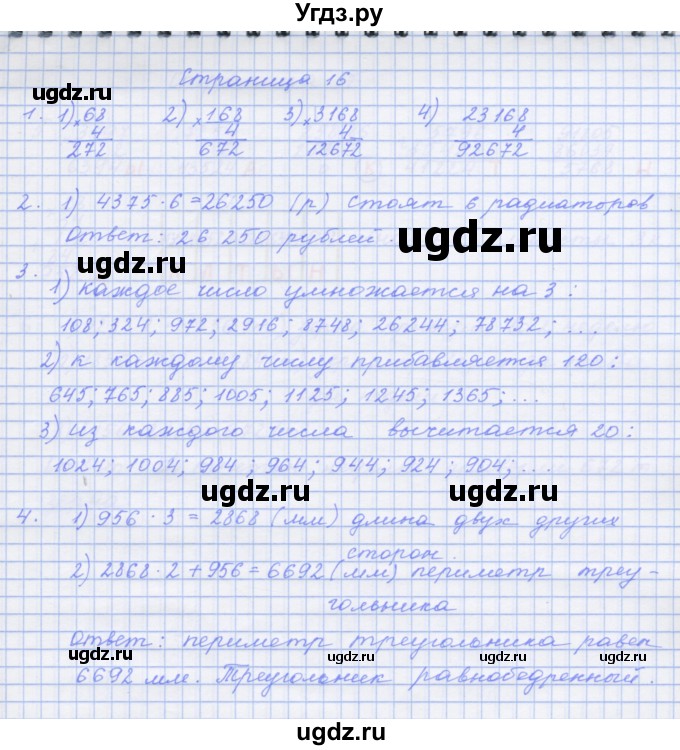 Угдз.ру
Страница 16
1. 1) ×68 2) ×168 3) ×3168 4) 23168
4 4 4 4
272 672 12672 92672
2. 1) 4375·6=26250 (р) стоят 6 радиаторов.
Ответ: 26 250 рублей.
3.
1) каждое число умножается на 3:
108; 324; 972; 2916; 8748; 26244; 78732; ...
2) к каждому числу прибавляется 120:
645; 765; 885; 1005; 1125; 1245; 1365; ...
3) из каждого числа вычитается 20:
1024; 1004; 984; 964; 944; 924; 904; ...
4. 1) 956·3 = 2868 (мм) длина двух других
сторон.
2) 2868·2+956=6692 (мм) периметр треу-
гольника
Ответ: периметр треугольника равен
6692 мм. Треугольник равнобедренный.
ugdz.ru
ugdz.ru
ugdz.ru
ugdz.ru
ugdz.ru
ugdz.ru
ugdz.ru
ugdz.ru
ugdz.ru
ugdz.ru
ugdz.ru
ugdz.ru
©ugdz.ru